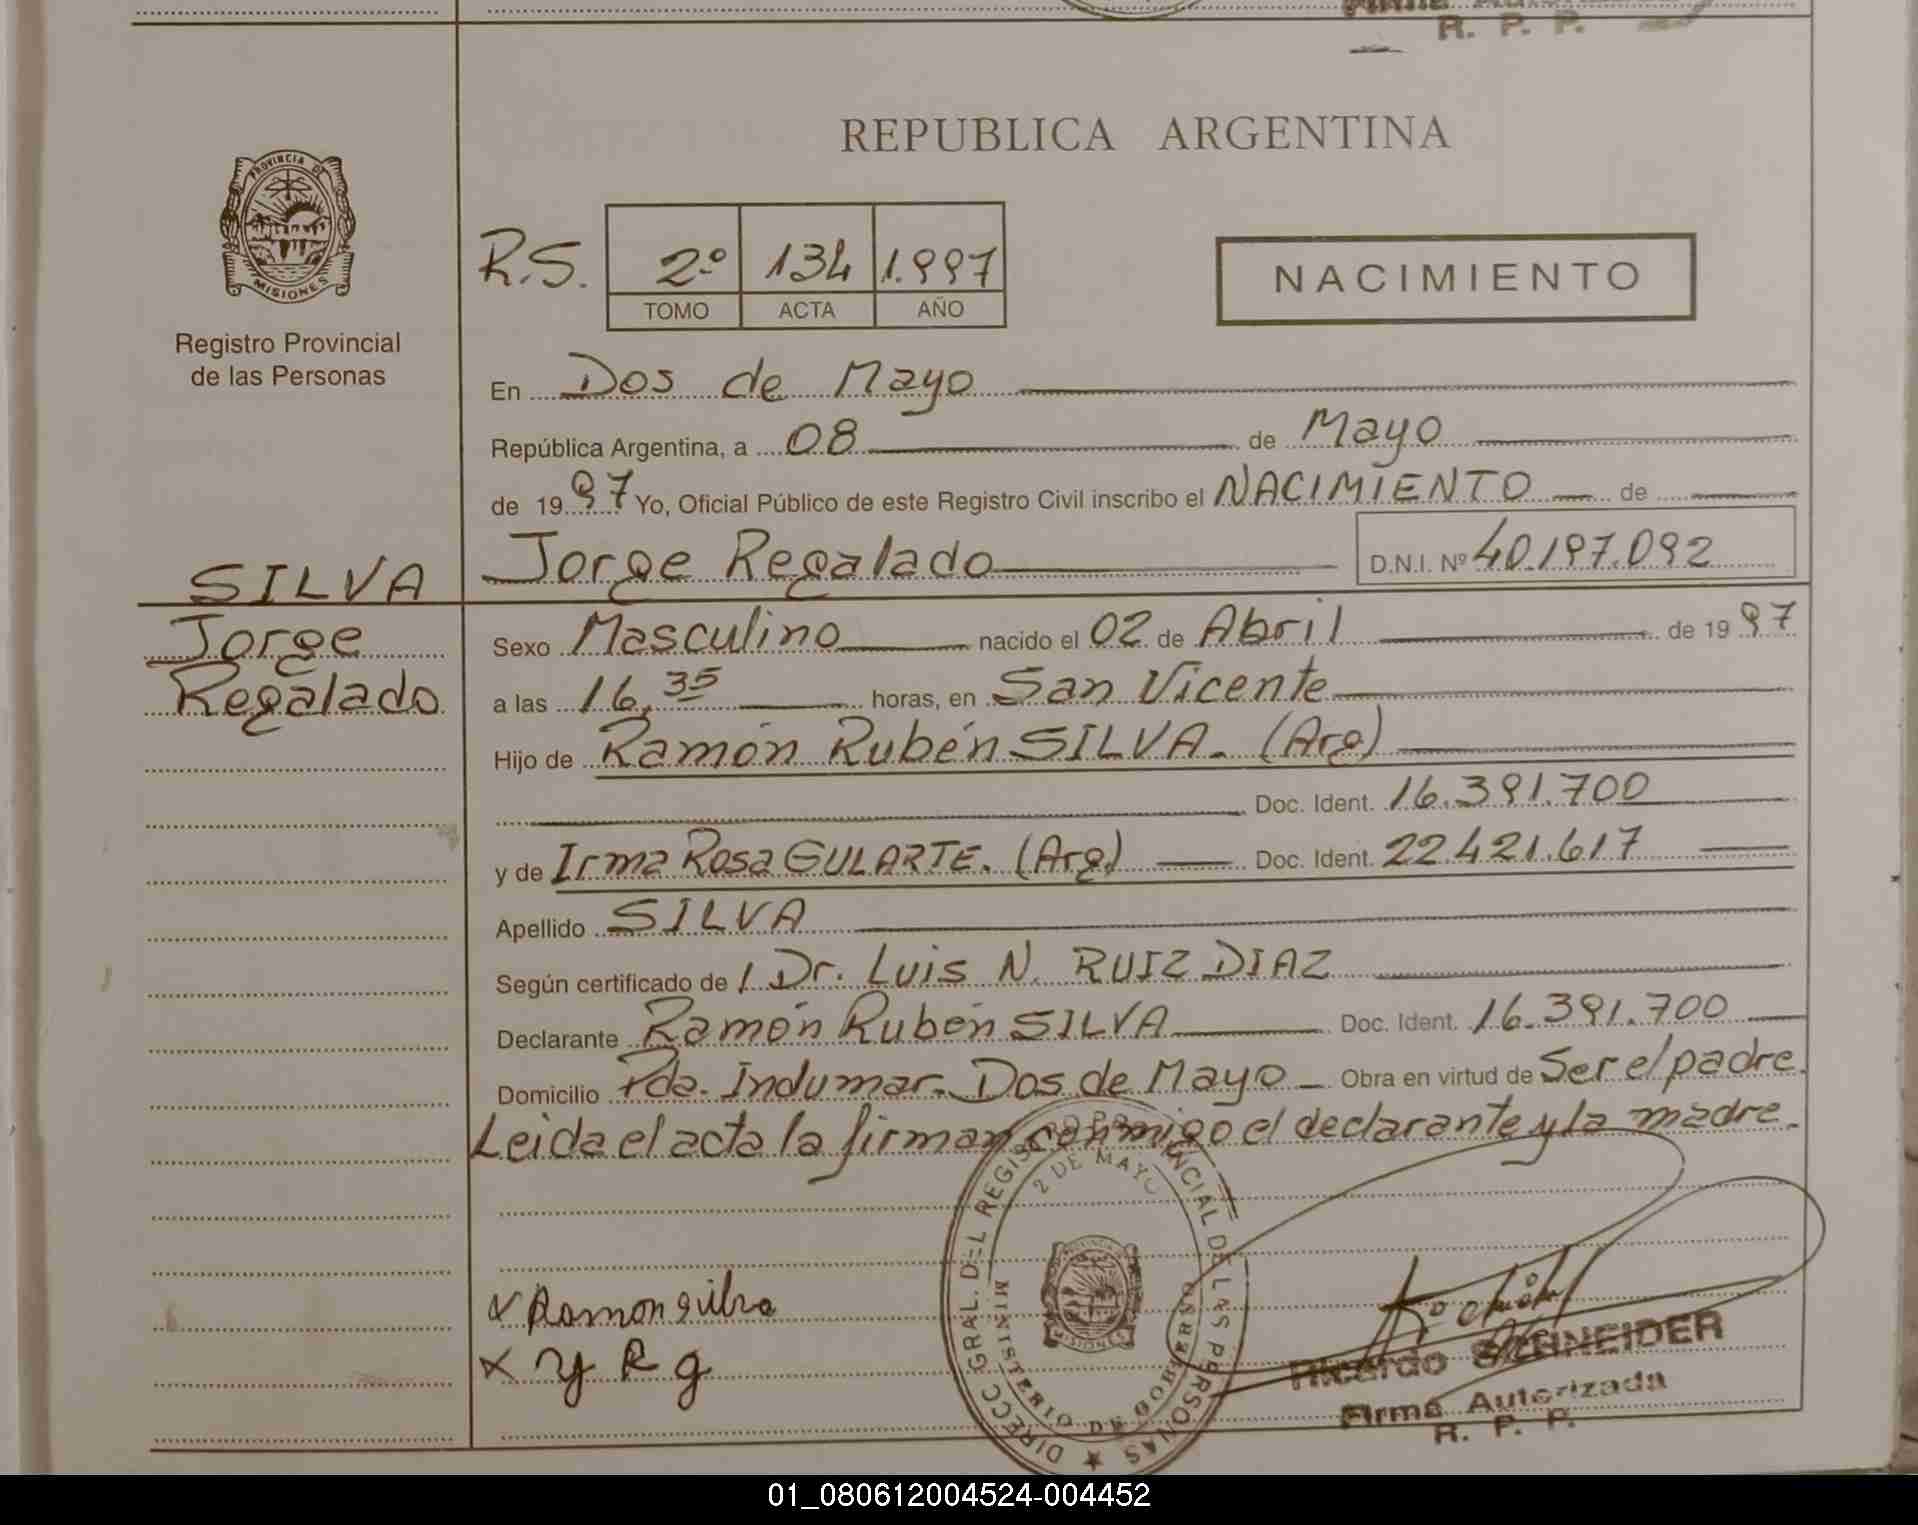 Firma Autorizada
R. P. P.
REPUBLICA ARGENTINA
PROVINCIA DE
MISIONES
Registro Provincial
de las Personas
R.S. 2º 134 1.997
TOMO ACTA AÑO
NACIMIENTO
En Dos de Mayo
República Argentina, a 08 de Mayo
de 1997 Yo, Oficial Público de este Registro Civil inscribo el NACIMIENTO de
Jorge Regalado D.N.I. Nº 40.197.092
SILVA
Jorge
Regalado
Sexo Masculino nacido el 02 de Abril de 1997
a las 16,35 horas, en San Vicente
Hijo de Ramón Rubén SILVA. (Arg)
Doc. Ident. 16.391.700
y de Irma Rosa GULARTE. (Arg.) Doc. Ident. 22.421.617
Apellido SILVA
Según certificado de / Dr. Luis N. RUIZ DIAZ
Declarante Ramón Rubén SILVA Doc. Ident. 16.391.700
Domicilio Pda. Indumar. Dos de Mayo Obra en virtud de Ser el padre.
Leida el acta la firman conmigo el declarante y la madre.
DIRECC. GRAL. DEL REGISTRO PROVINCIAL DE LAS PERSONAS
2 DE MAYO
MINISTERIO DE GOBIERNO
x Ramon silva
x y R g
Ricardo SCHNEIDER
Firma Autorizada
R. P. P.
01_080612004524-004452